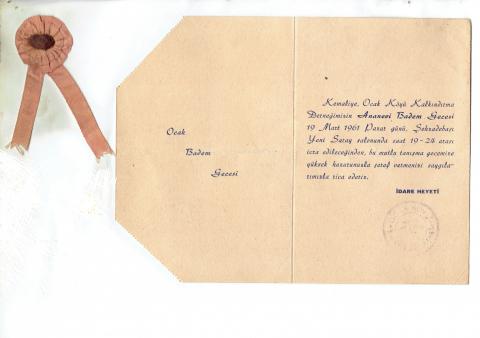 Ocak
Badem
Gecesi
Kemaliye, Ocak Köyü Kalkındırma
Derneğimizin Ananevi Badem Gecesi
19 Mart 1961 Pazar günü, Şehzadebaşı
Yeni Saray salonunda saat 19-24 arası
icra edileceğinden, bu mutlu tanışma gecemize
yüksek huzurunuzla şeref vermenizi saygıla-
rımızla rica ederiz.
İDARE HEYETİ